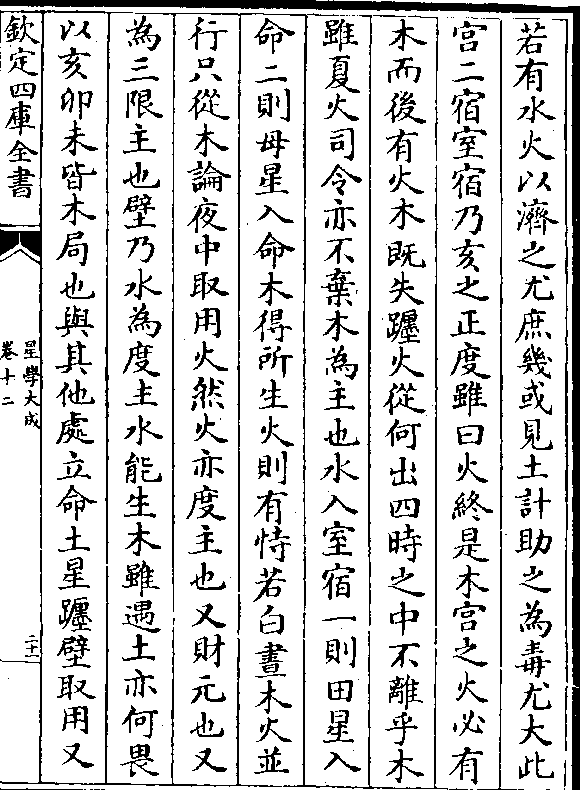 若有水火以濟之尤庶幾或見土計助之為毒尤大此
宫二宿室宿乃亥之正度雖曰火終是木宫之火必有
木而後有火木既失躔火從何出四時之中不離乎木
雖夏火司令亦不棄木為主也水入室宿一則田星入
命二則母星入命木得所生火則有恃若白晝木火並
行只從木論夜中取用火然火亦度主也又財元也又
為三限主也壁乃水為度主水能生木雖遇土亦何畏
以亥卯未皆木局也與其他處立命土星躔壁取用又
欽定四庫全書
星學大成
卷十二
二十一